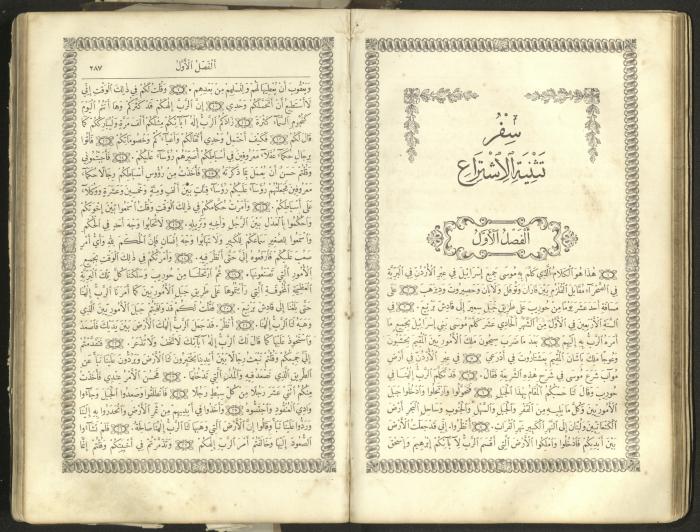 سِفْرُ
تَثْنِيَةِ ٱلِٱشْتِرَاعِ
ٱلْفَصْلُ ٱلْأَوَّلُ
هذا هو الكلام الذي كلم به موسى جميع إسرائيل في عبر الأردن في البرية
في الصحراء مقابل القلزم بين فاران وتوفل ولابان وحصيروت وذي ذهب على
مسافة أحد عشر يوما من حوريب على طريق جبل سعير إلى قادش برنيع. في
السنة الأربعين في الأول من الشهر الحادي عشر كلم موسى بني إسرائيل بجميع ما
أمره الرب به إليهم بعد ما ضرب سيحون ملك الأموريين المقيم بحشبون
وعوجا ملك باشان المقيم بعشتاروت في أذرعي في عبر الأردن في أرض
موآب شرع موسى في شرح هذه الشريعة فقال. قد كلمنا الرب إلهنا في
حوريب وقال لنا حسبكم المقام بهذا الجبل فتحولوا وارتحلوا وادخلوا جبل
الأموريين وكل ما يليه من القفر والجبل والسهل والجنوب وساحل البحر أرض
الكنعانيين ولبنان إلى النهر الكبير نهر الفرات. انظروا إني قد جعلت الأرض
بين أيديكم فادخلوا واملكوا الأرض التي أقسم الرب لآبائكم إبرهيم وإسحق
ٱلْفَصْلُ ٱلْأَوَّلُ ٢٨٧
ويعقوب أن يعطيها لهم ولنسلهم من بعدهم. وقلت لكم في ذلك الوقت إني
لا أستطيع أن أتحملكم وحدي إن الرب إلهكم قد كثركم وها أنتم اليوم
كنجوم السماء كثرة زادكم الرب إله آبائكم مثلكم ألف مرة وليبارككم كما
قال لكم فكيف أحتمل وحدي أثقالكم وأعباءكم وخصوماتكم فأتوا
برجال حكماء عقلاء معروفين في أسباطكم أصيرهم رؤساء عليكم. فأجبتموني
وقلتم حسن أن يعمل بما ذكرته فأخذت من رؤوس أسباطكم رجالا حكماء
معروفين فجعلتهم رؤساء عليكم رؤساء فئات بين ألف ومئة وخمسين وعشرة ووكلاء
على أسباطكم. وأمرت حكامكم في ذلك الوقت وقلت اسمعوا بين إخوتكم
واحكموا بالعدل بين الرجل وأخيه ونزيله. لا تحابوا وجه أحد في الحكم
واسمعوا للصغير سماعكم للكبير ولا تهابوا وجه إنسان فإن الحكم لله وأي أمر
صعب عليكم فارفعوه إلي حتى أنظر فيه. وأمرتكم في ذلك الوقت بجميع
الأمور التي تصنعونها. ثم ارتحلنا من حوريب وسلكنا كل تلك البرية
العظيمة المخوفة التي رأيتموها على طريق جبل الأموريين كما أمرنا الرب إلهنا
حتى بلغنا إلى قادش برنيع. فقلت لكم قد وافيتم جبل الأموريين الذي
وهبه لنا الرب إلهنا. انظر. قد جعل الرب إلهك الأرض بين يديك فاصعد
واستحوذ عليها كما قال لك الرب إله آبائك لا تخف ولا تذعر. فتقدمتم
إلي جميعكم وقلتم نبعث رجالا بين أيدينا يختبرون لنا الأرض ويردون علينا نبأ عن
الطريق الذي نصعد فيه والمدن التي ندخلها. فحسن الأمر عندي فأخذت
منكم اثني عشر رجلا من كل سبط رجلا فانطلقوا وصعدوا الجبل وجاءوا
وادي العنقود واجتسوه وأخذوا في أيديهم من ثمر الأرض وانحدروا به إلينا
وردوا علينا نبأ وقالوا إن الأرض التي وهبها لنا الرب إلهنا صالحة. فلم تشاءوا
الصعود إليها وخالفتم أمر الرب إلهكم وتذمرتم في أخبيتكم وقلتم إنما